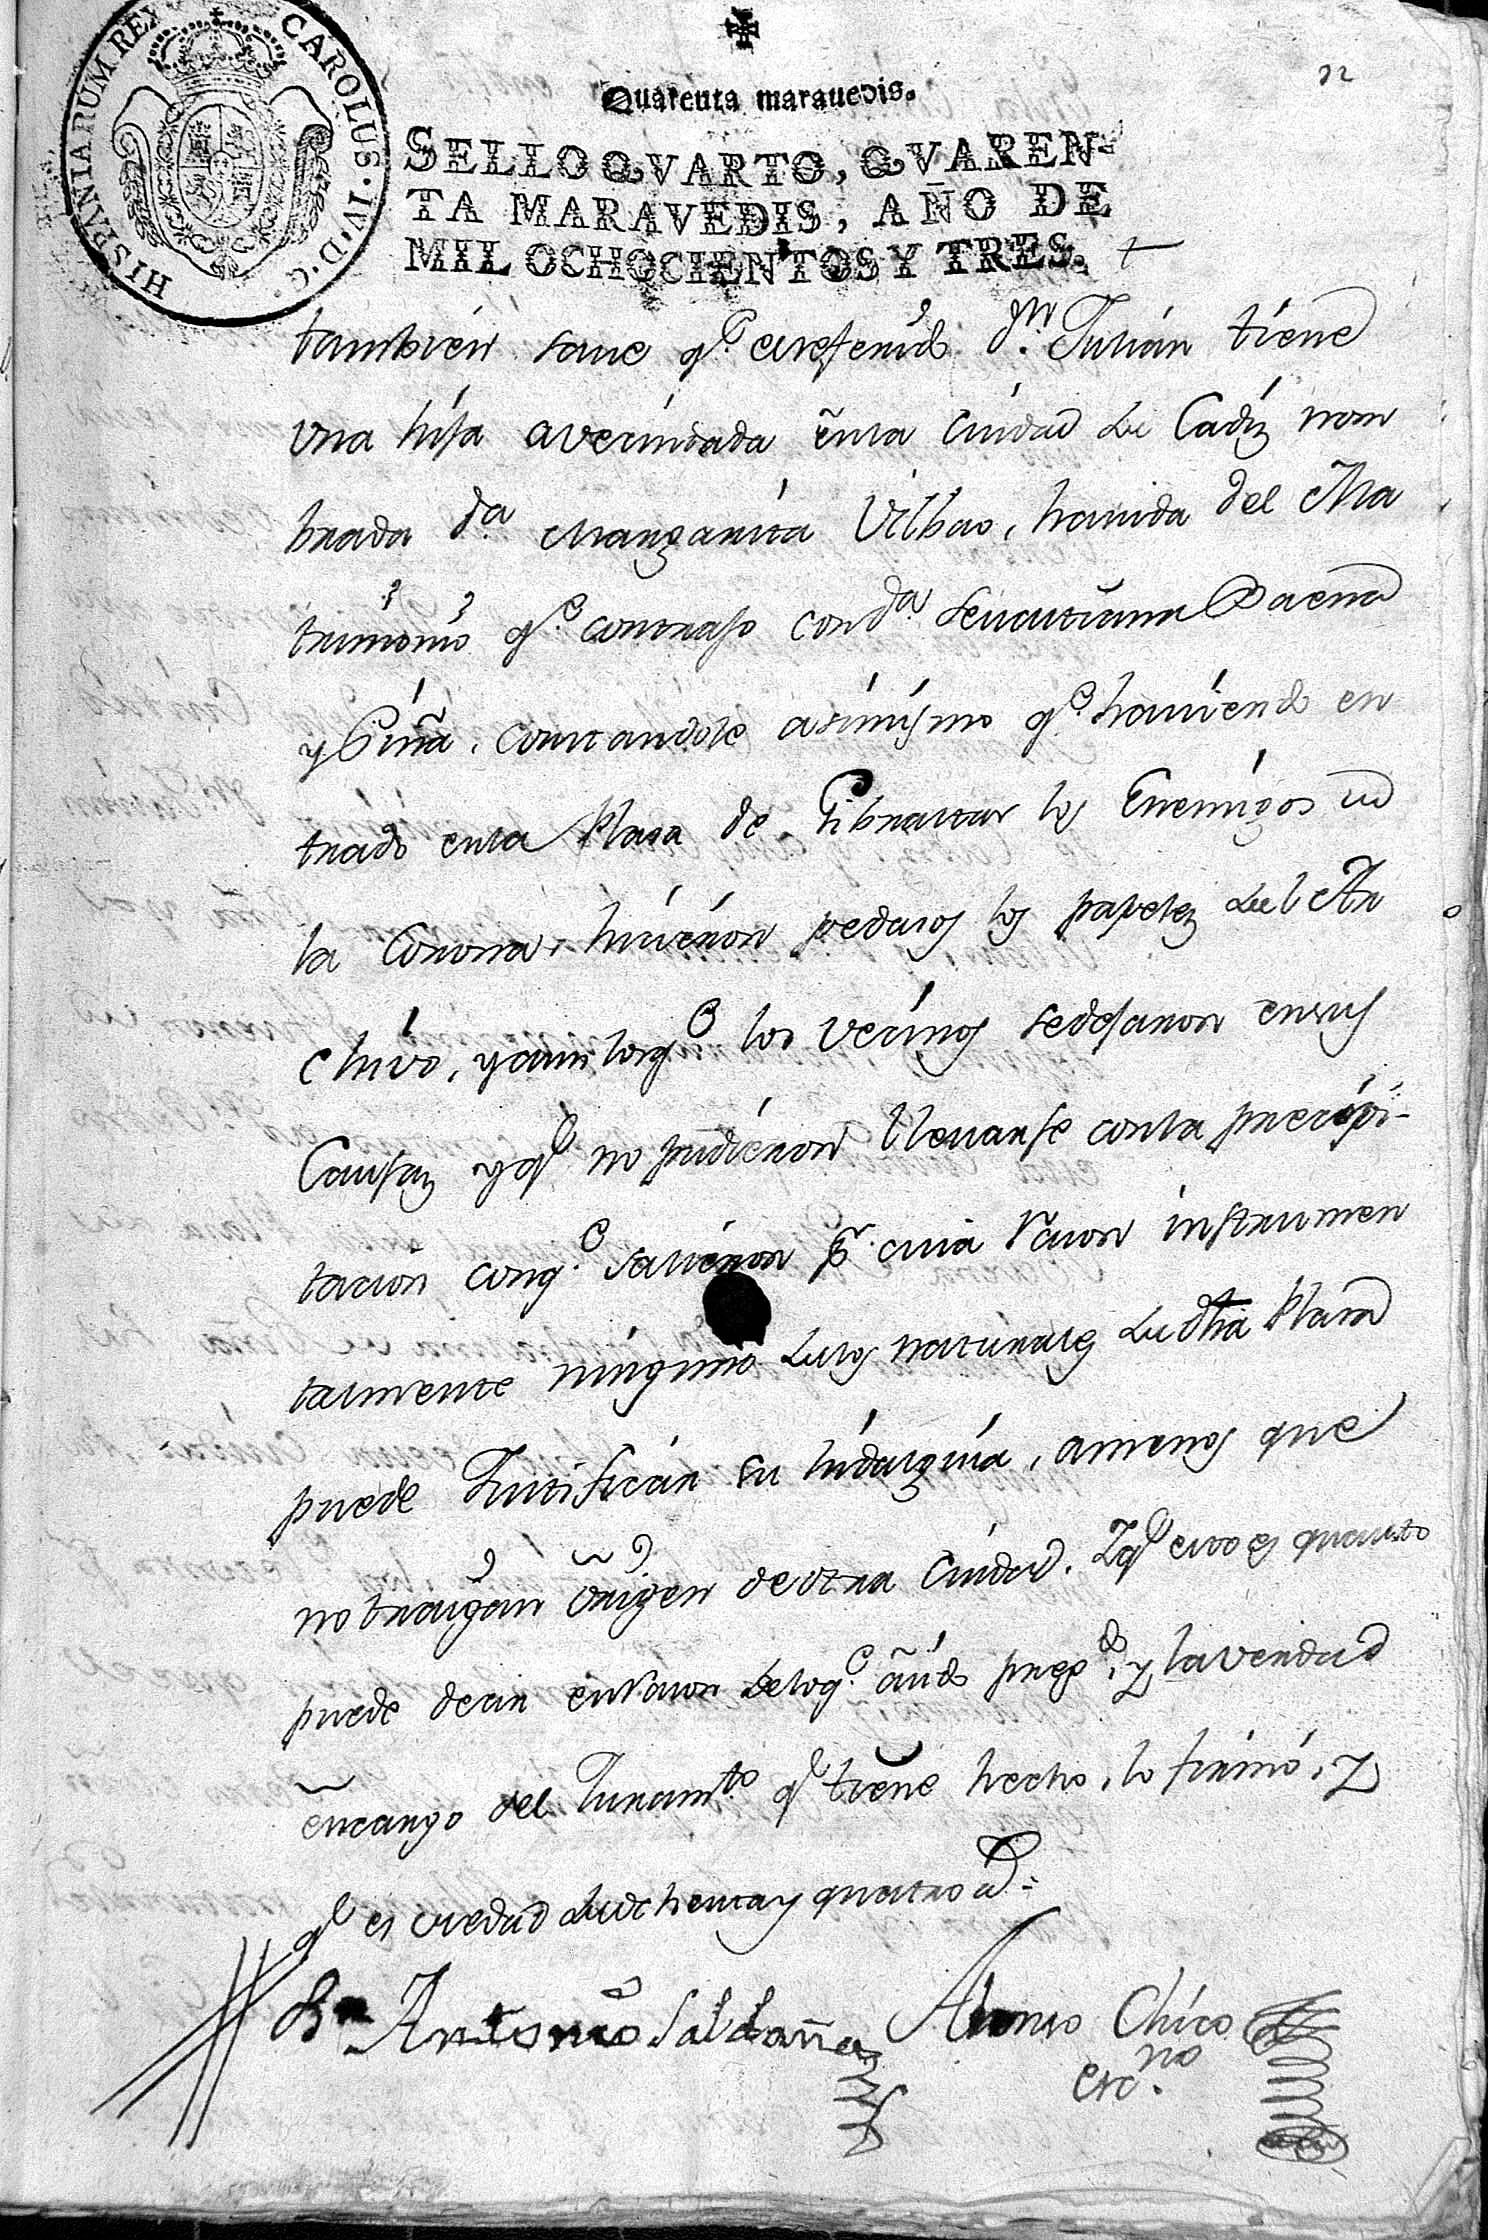 HISPANIARUM REX CAROLUS·IV·D·G·
Quarenta maravedis.
SELLO QVARTO, QVAREN-
TA MARAVEDIS, AÑO DE
MIL OCHOCIENTOS Y TRES.
tambien save q.e el referido d.n Julian tiene
una hija avecindada en la Ciudad de Cadiz nom
brada d.a Margarita Vilbao, havida del Ma
trimonio q.e contrajo con d.a Sebastiana Baena
y Piña, constandole asimismo q.e haviendo en
trado en la Plasa de Gibraltar los Enemigos de
la Corona, hicieron pedasos los papeles del Ar
chivo, y aun los q.e los vecinos se dejaron en sus
Causas y q.e no pudieron llevarse con la precipi-
tacion con q.e salieron p.r cuia rason instrumen
talmente ninguno de los naturales de dha Plasa
puede Justificar su hidalguia, a menos que
no traigan origen de otra Ciudad. Y q.e esto es quanto
puede decir en rason de lo q.e a sido preg.do y la verdad
en cargo del Juram.to q.e tiene hecho, lo firmó, y
q.e es de edad de ochenta y quatro a.s
B.r Antonio Saldaña Alonso Chico
Esc.no